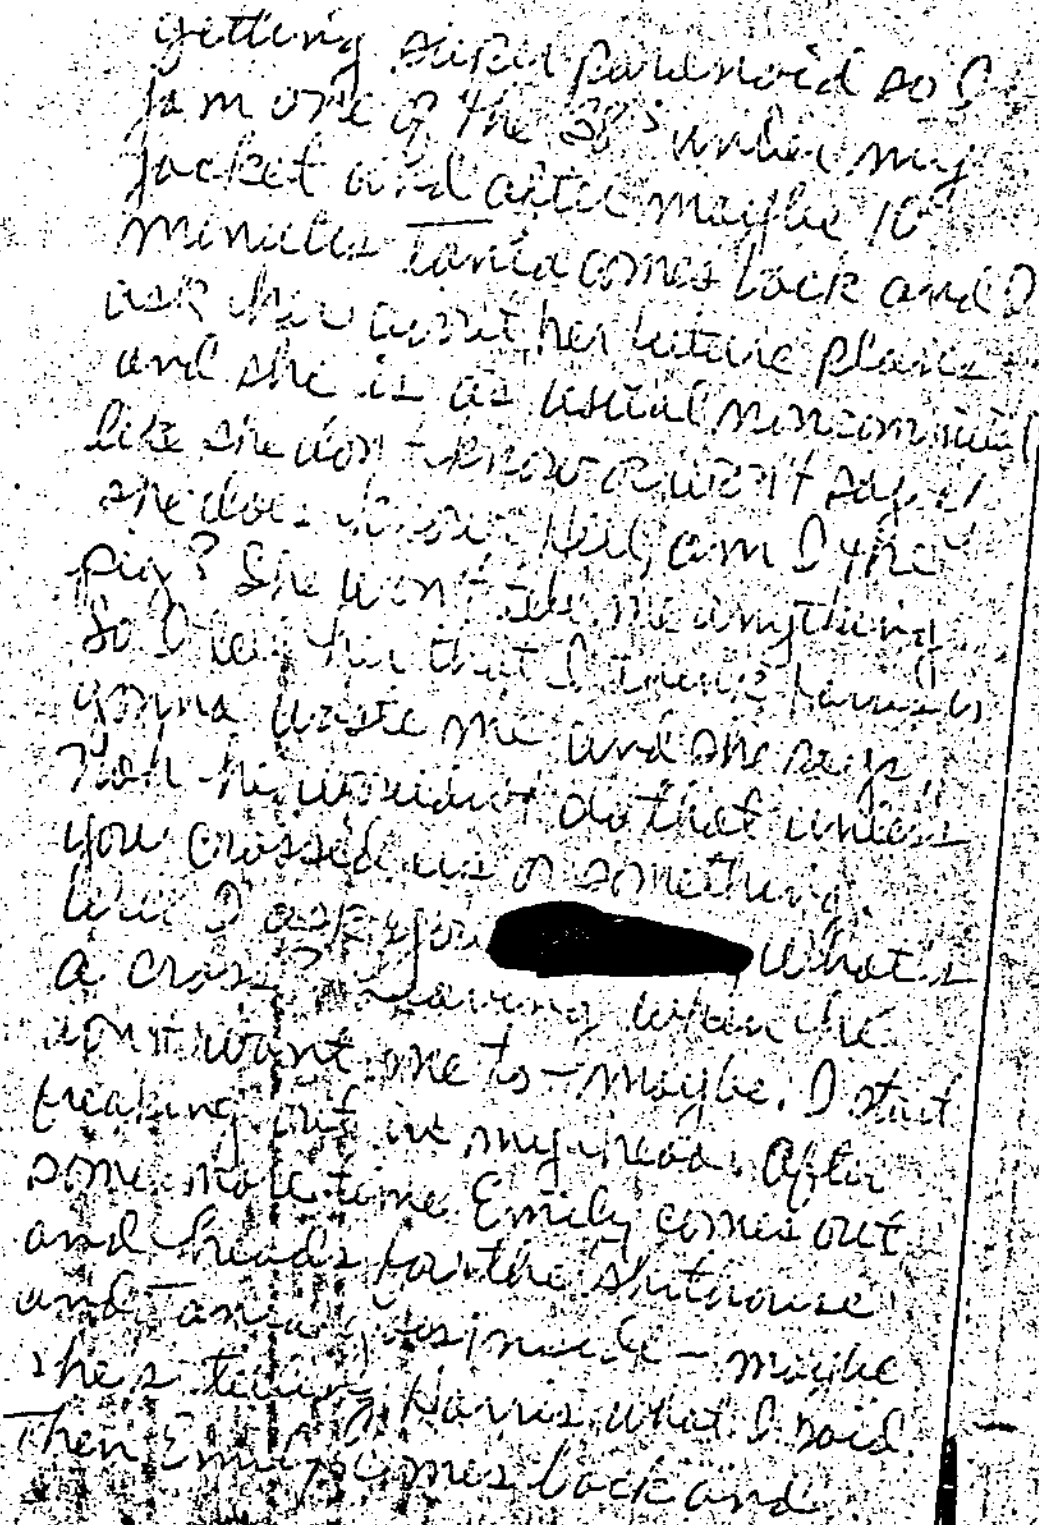 getting super paranoid so I
jam one of the 38's under my
jacket and after maybe 10
minutes Tania comes back and I
ask her about her future plans
and she is as usual noncommittal
like she don't know or won't say if
she does know. Hell, am I the
pig? She won't tell me anything
So I tell her that I think Harris is
gonna waste me and she says,
Nah - he wouldn't do that unless
you crossed us or something.
Well I ask you What's
a cross? Leaving when he
don't want me to - maybe. I start
freaking out in my head. After
some more time Emily comes out
and heads for the shithouse
and Tania goes inside - maybe
she's telling Harris what I said.
Then Emily comes back and